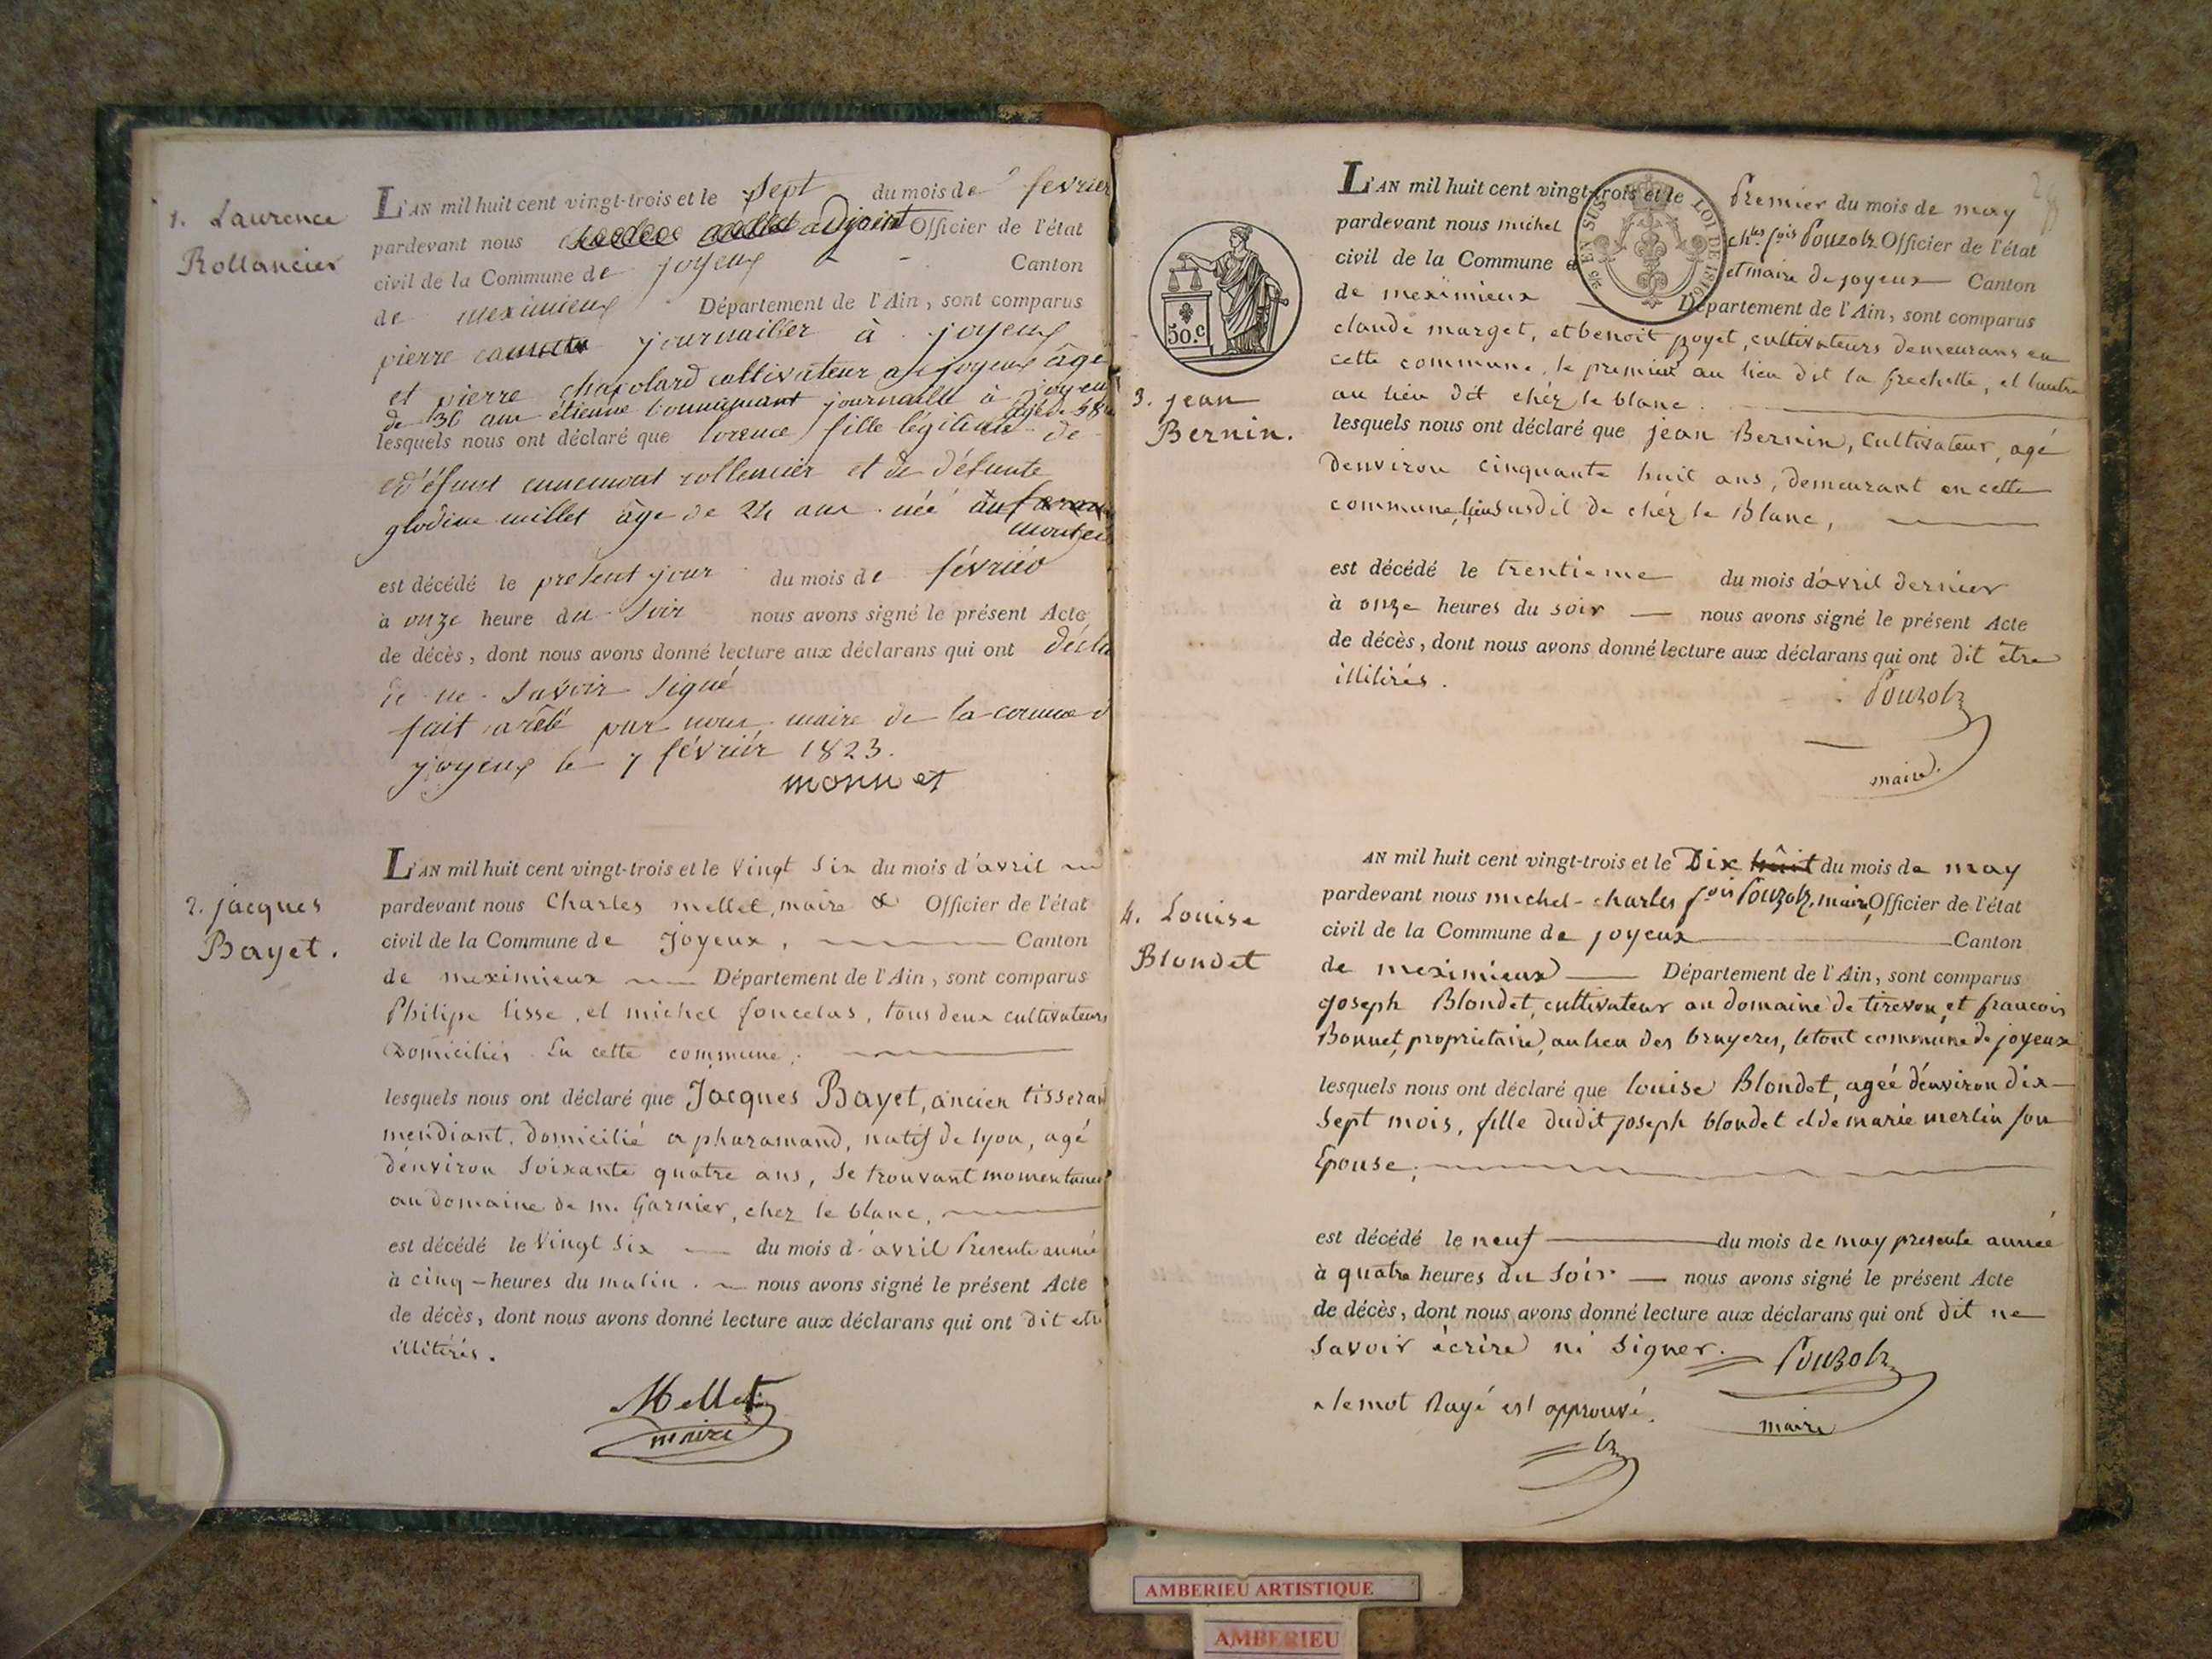 1. Laurence
Rollancier
L'AN mil huit cent vingt-trois et le sept du mois de février
pardevant nous adjoint Officier de l'état
civil de la Commune de joyeux Canton
de meximieux Département de l'Ain, sont comparus
pierre journallier à joyeux
et pierre chapolard cultivateur a joyeux âgé
de 36 ans étienne journallé à joyeux
lesquels nous ont déclaré que lorence fille légitime de
défunt rollencier et de défunte
glodine millet âge de 24 ans née
est décédé le present jour du mois de février
à onze heure du soir nous avons signé le présent Acte
de décès, dont nous avons donné lecture aux déclarans qui ont décla
de ne savoir signé
fait arêté par nous maire de la comune d
joyeux le 7 février 1823.
monnet
2. jacques
Bayet.
L'AN mil huit cent vingt-trois et le vingt six du mois d'avril
pardevant nous Charles mellet, maire & Officier de l'état
civil de la Commune de Joyeux, Canton
de meximieux Département de l'Ain, sont comparus
Philipe tisse, et michel foncelas, tous deux cultivateurs
Domiciliés En cette commune;
lesquels nous ont déclaré que Jacques Bayet, ancien tisseran
mendiant, domicilié a pharamand, natif de lyon, agé
d'environ soixante quatre ans, se trouvant momentane
au domaine de m. Garnier, chez le blanc,
est décédé le vingt six du mois d'avril Presente année
à cinq heures du matin. nous avons signé le présent Acte
de décès, dont nous avons donné lecture aux déclarans qui ont dit etre
illitérés.
Mellet
maire
50.c
EN SUS LOI DE 1816
3. jean
Bernin.
L'AN mil huit cent vingt-trois et le Premier du mois de may
pardevant nous michel ch.les f.ois Pouzolz Officier de l'état
civil de la Commune et maire de joyeux Canton
de meximieux Département de l'Ain, sont comparus
claude marget, et benoit poyet, cultivateurs demeurans en
cette commune, le premier au lieu dit la frechette, et lautre
au lieu dit chéz le blanc.
lesquels nous ont déclaré que jean Bernin, Cultivateur, agé
denviron cinquante huit ans, demeurant en cette
commune, lieu susdit de chéz le Blanc,
est décédé le trentieme du mois d'avril dernier
à onze heures du soir nous avons signé le présent Acte
de décès, dont nous avons donné lecture aux déclarans qui ont dit etre
illitirés.
Pouzolz
maire.
4. Louise
Blondet
AN mil huit cent vingt-trois et le Dix huit du mois de may
pardevant nous michel-charles f.ois Pouzolz, maire, Officier de l'état
civil de la Commune de joyeux Canton
de meximieux Département de l'Ain, sont comparus
joseph Blondet, cultivateur au domaine de tirevou, et francois
Bonnet, propriétaire, au lieu des bruyeres, le tout commune de joyeux
lesquels nous ont déclaré que louise Blondet, ageé d'environ dix
sept mois, fille dudit joseph blondet et de marie merlin son
Epouse;
est décédé le neuf du mois de may presente année
à quatre heures du soir nous avons signé le présent Acte
de décès, dont nous avons donné lecture aux déclarans qui ont dit ne
savoir écrire ni signer. Pouzolz
le mot Rayé est approuvé. maire
AMBERIEU ARTISTIQUE
AMBERIEU